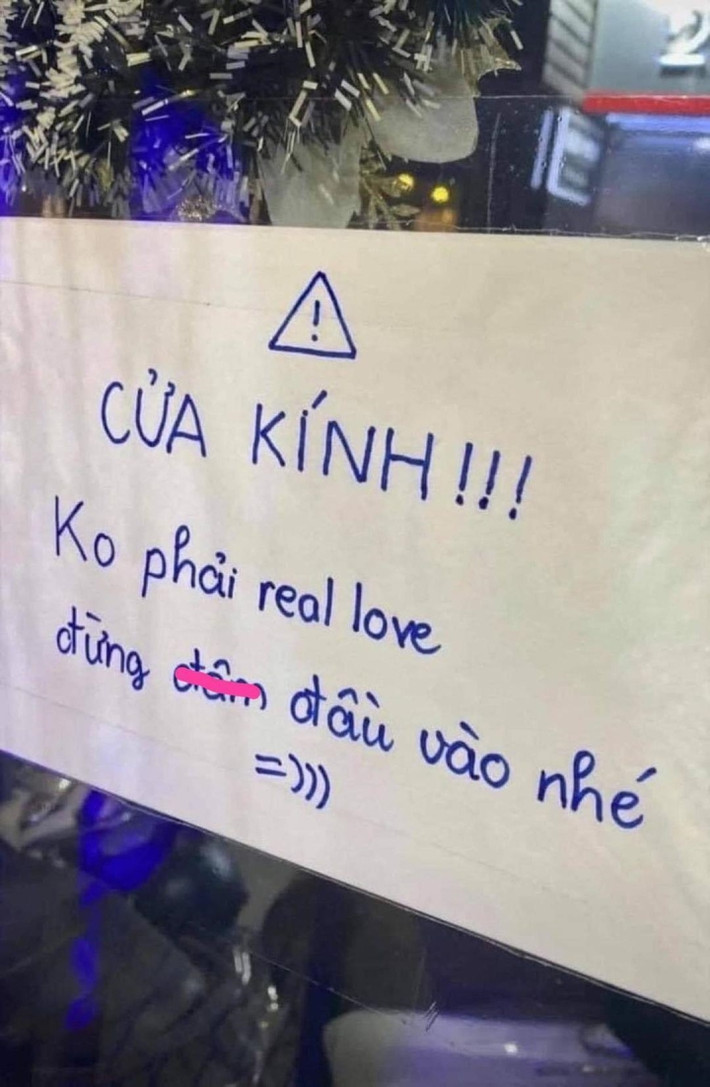 CỬA KÍNH!!!
Ko phải real love
đừng đâm đầu vào nhé
=)))